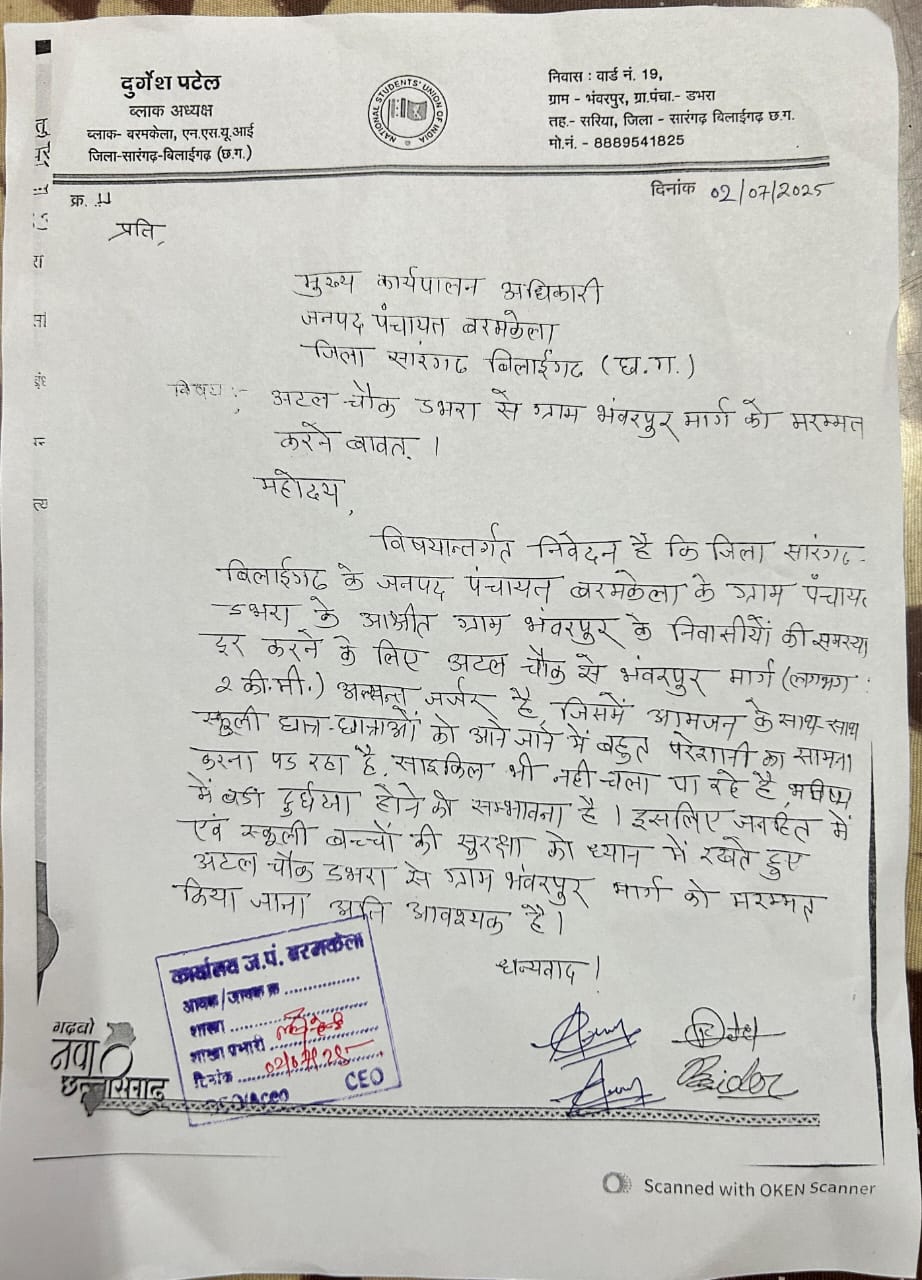 दुर्गेश पटेल
ब्लाक अध्यक्ष
ब्लाक- बरमकेला, एन.एस.यू.आई
जिला-सारंगढ़-बिलाईगढ़ (छ.ग.)
NATIONAL STUDENTS' UNION OF INDIA
निवास : वार्ड नं. 19,
ग्राम - भंवरपुर, ग्रा.पंचा.- डभरा
तह.- सरिया, जिला - सारंगढ़ बिलाईगढ़ छ.ग.
मो.नं. - 8889541825
क्र. 11
दिनांक 02/07/2025
प्रति,
मुख्य कार्यपालन अधिकारी
जनपद पंचायत बरमकेला
जिला सारंगढ बिलाईगढ (छ.ग.)
विषय :- अटल चौक डभरा से ग्राम भंवरपुर मार्ग को मरम्मत
करने बावत् ।
महोदय,
विषयान्तर्गत निवेदन है कि जिला सारंगढ-
बिलाईगढ के जनपद पंचायत बरमकेला के ग्राम पंचायत
डभरा के आश्रीत ग्राम भंवरपुर के निवासीयों की समस्या
दूर करने के लिए अटल चौक से भंवरपुर मार्ग (लगभग
2 की.मी.) अत्यन्त जर्जर है, जिसमें आमजन के साथ-साथ
स्कुली छात्र-छात्राओं को आने जाने में बहुत परेशानी का सामना
करना पड रहा है. साइकिल भी नही चला पा रहे है, भविष्य
में बडा दुर्घटना होने की सम्भावना है । इसलिए जनहित में
एवं स्कुली बच्चों की सुरक्षा को ध्यान में रखते हुए
अटल चौक डभरा से ग्राम भंवरपुर मार्ग को मरम्मत
किया जाना अति आवश्यक है ।
धन्यवाद ।
कार्यालय ज.पं. बरमकेला
आवक/जावक क्र
शाखा
शाखा प्रभारी
दिनांक 02/07/25
CEO
गढ़बो
नवा
छत्तीसगढ़
Scanned with OKEN Scanner